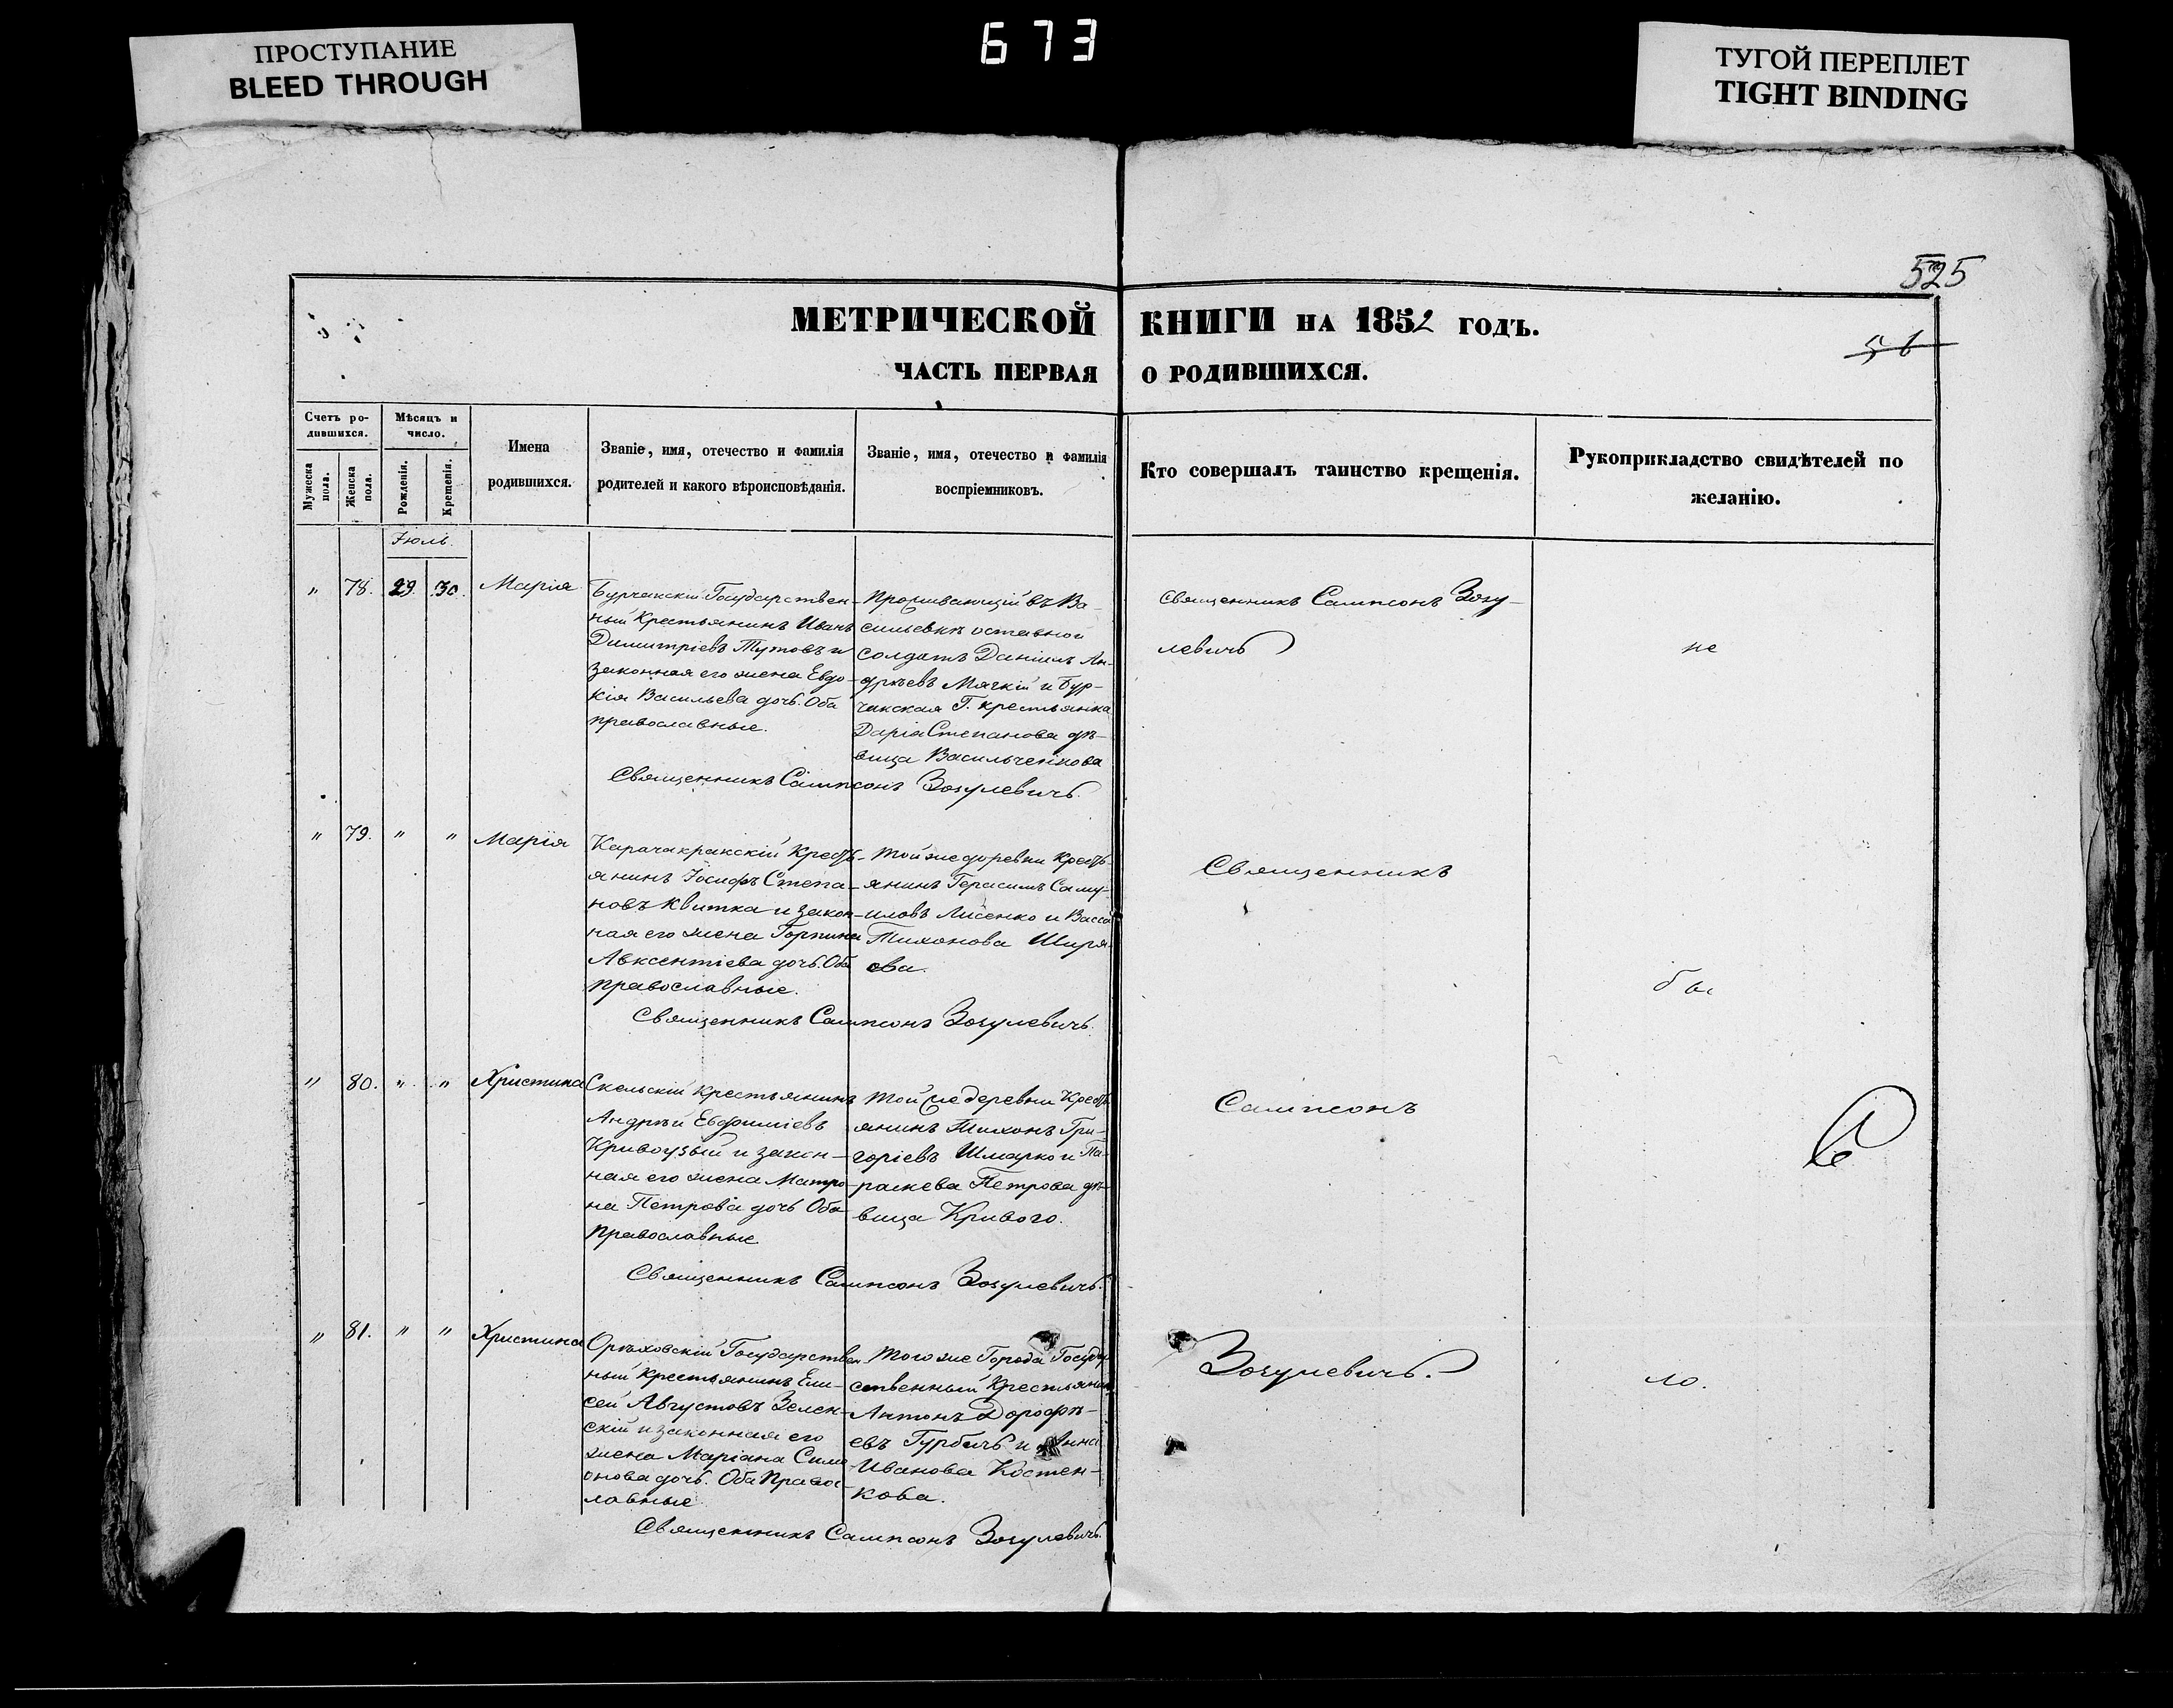 673
ПРОСТУПАНИЕ
BLEED THROUGH
ТУГОЙ ПЕРЕПЛЕТ
TIGHT BINDING
525
МЕТРИЧЕСКОЙ КНИГИ НА 1852 ГОДЪ.
56
ЧАСТЬ ПЕРВАЯ О РОДИВШИХСЯ.
Счетъ ро-
дившихся.
Мужеска пола.
Женска пола.
Мѣсяцъ и
число.
Рожденія.
Крещенія.
Имена
родившихся.
Званіе, имя, отечество и фамилія
родителей и какого вѣроисповѣданія.
Званіе, имя, отечество и фамилія
воспріемниковъ.
Кто совершалъ таинство крещенія.
Рукоприкладство свидѣтелей по
желанію.
Іюль.
" 78. 29. 30. Марія
Бурчакскій Государствен-
ный Крестьянинъ Иванъ
Димитріевъ Тутовъ и
законная его жена Евдо-
кія Васильева дочь. Оба
православные.
Проживающій въ Ва-
сильевкѣ оставной
солдатъ Даніилъ Ан-
дрѣевъ Мячкій и Бур-
чакская Г. крестьянка
Дарія Степанова дѣ-
вица Васильченкова
Священникъ Сампсонъ Зозу-
левичъ
не
Священникъ Сампсонъ Зозулевичъ.
" 79. " " Марія
Карачакракскій Кресть-
янинъ Іосифъ Степа-
новъ Квитка и закон-
ная его жена Горпина
Авксентіева дочь. Оба
православные.
Той же деревни Кресть-
янинъ Герасимъ Саму-
иловъ Лисенко и Васса
Тихонова Ширя-
ева.
Священникъ
бы
Священникъ Сампсонъ Зозулевичъ.
" 80. " " Христина
Скельскій крестьянинъ
Андрѣй Евфиміевъ
и закон-
ная его жена Матро-
на Петрова дочь Оба
православные
Той же деревни Кресть-
янинъ Тихонъ Гри-
горіевъ Шмарко и Па-
раскева Петрова дѣ-
вица Кривого.
Сампсонъ
Священникъ Сампсонъ Зозулевичъ.
" 81. " " Христина
Орѣховскій Государствен
ный крестьянинъ Ели-
сей Августовъ Зелен-
скій и законная его
жена Маріана Сим
онова дочь. Оба Право-
лавные.
Того же Города Государ
ственный Крестьянинъ
Антонъ Дорофѣ-
евъ Гурбичъ и Анна
Иванова Костен-
кова.
Зозулевичъ.
ло.
Священникъ Сампсонъ Зозулевичъ.